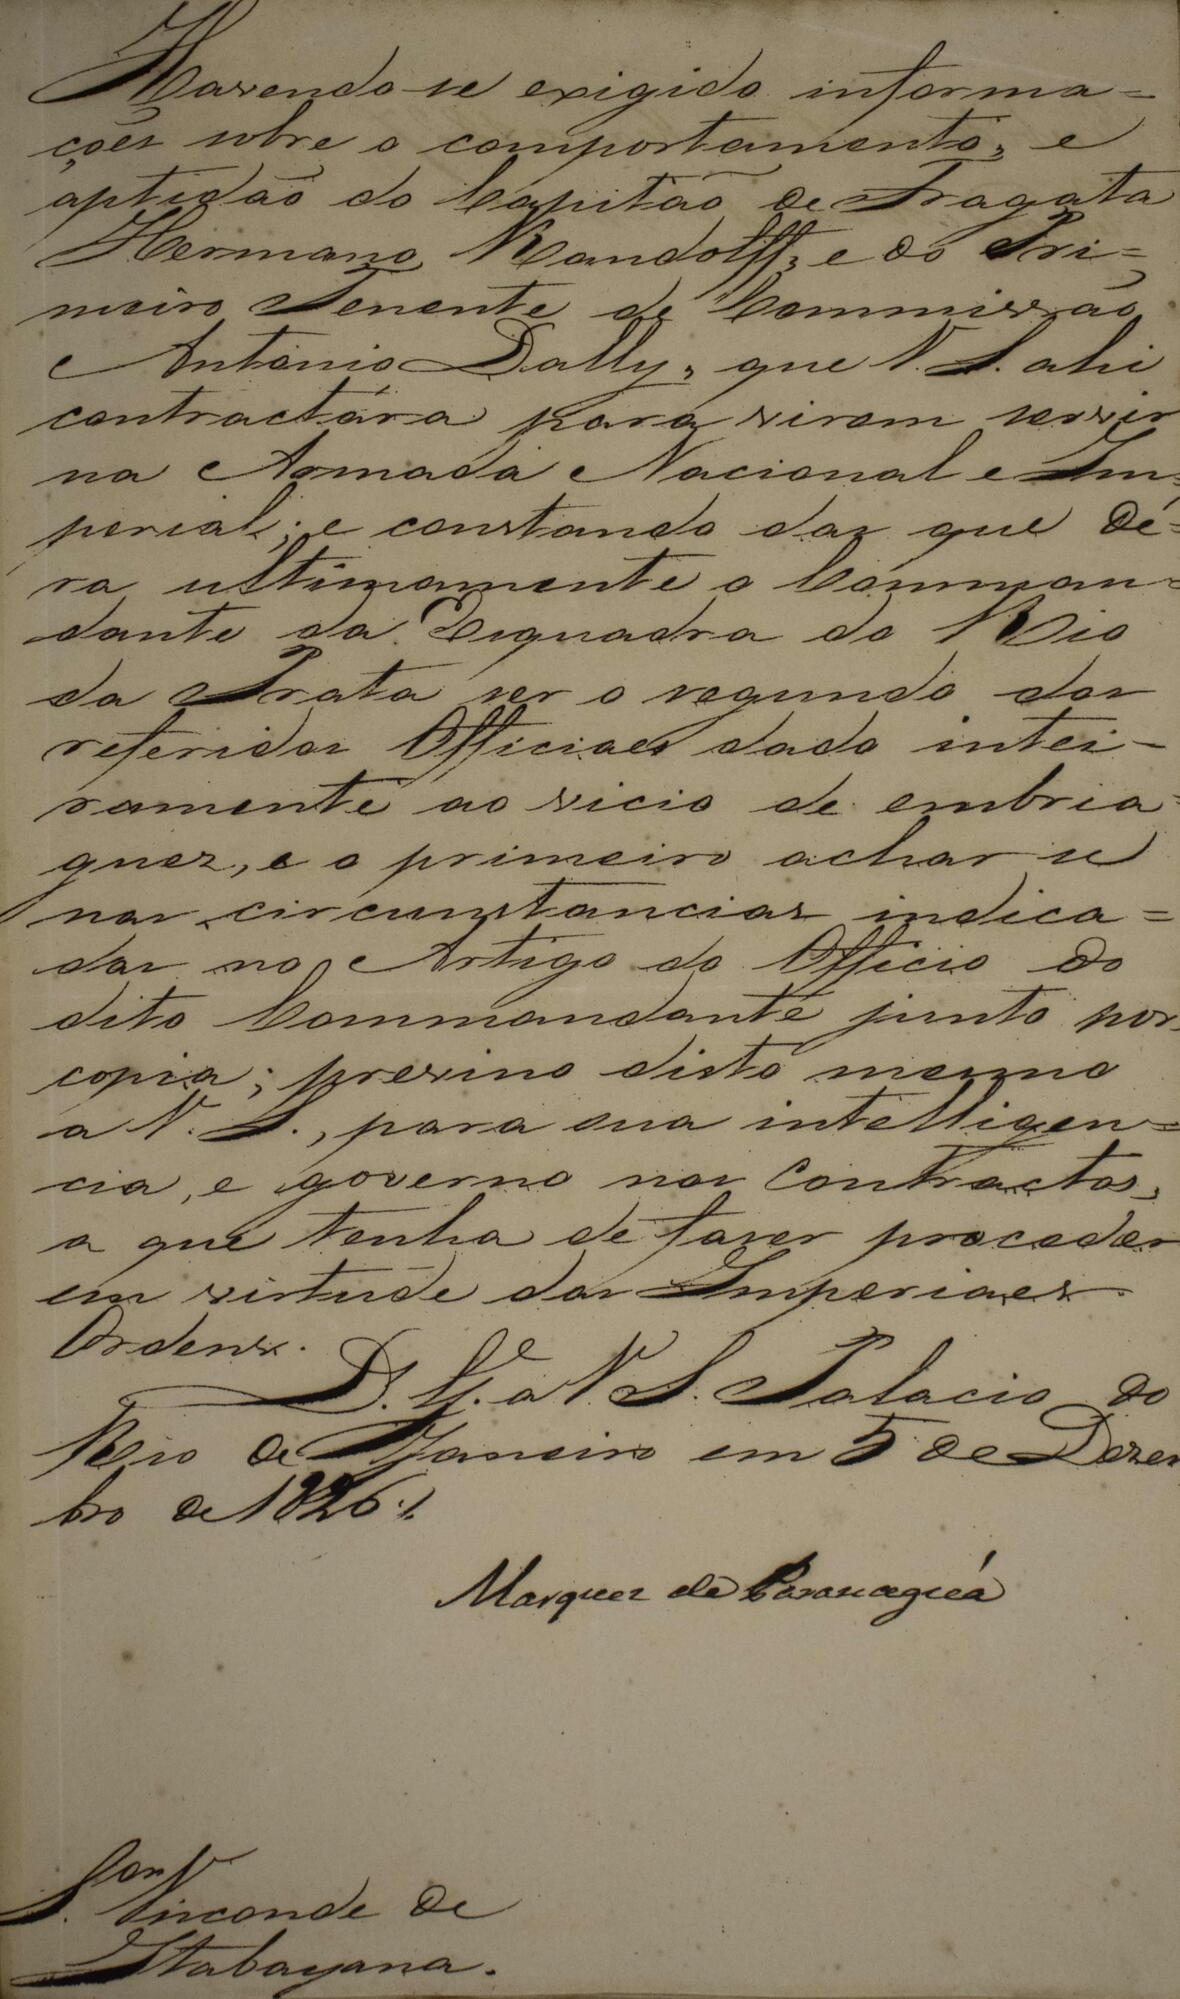 Havendo-se exigido informa=
ções sobre o comportamento, e
aptidão do Capitão de Fragata
Hermano Randolff, e do Pri=
meiro Tenente de Commissão
Antonio Dally, que V. S. ahi
contractára para virem servir
na Armada Nacional e Im=
perial; e constando das que dé=
ra ultimamente o Comman=
dante da Esquadra do Rio
da Prata ser o segundo dos
referidos Officiaes dado intei-
ramente ao vicio de embria=
guez, e o primeiro achar se
nas circunstancias indica=
das no Artigo do Officio do
dito Commandante junto por
copia; previno disto mesmo
a V. S., para sua intelligen=
cia, e governo nos Contractos,
a que tenha de fazer proceder
em virtude das Imperiaes
Ordens.
D. G.e a V S. Palacio do
Rio de Janeiro em 5 de Dezem
bro de 1826.
Marquez de Paranaguá
Sor V
S. Visconde de
Itabayana.